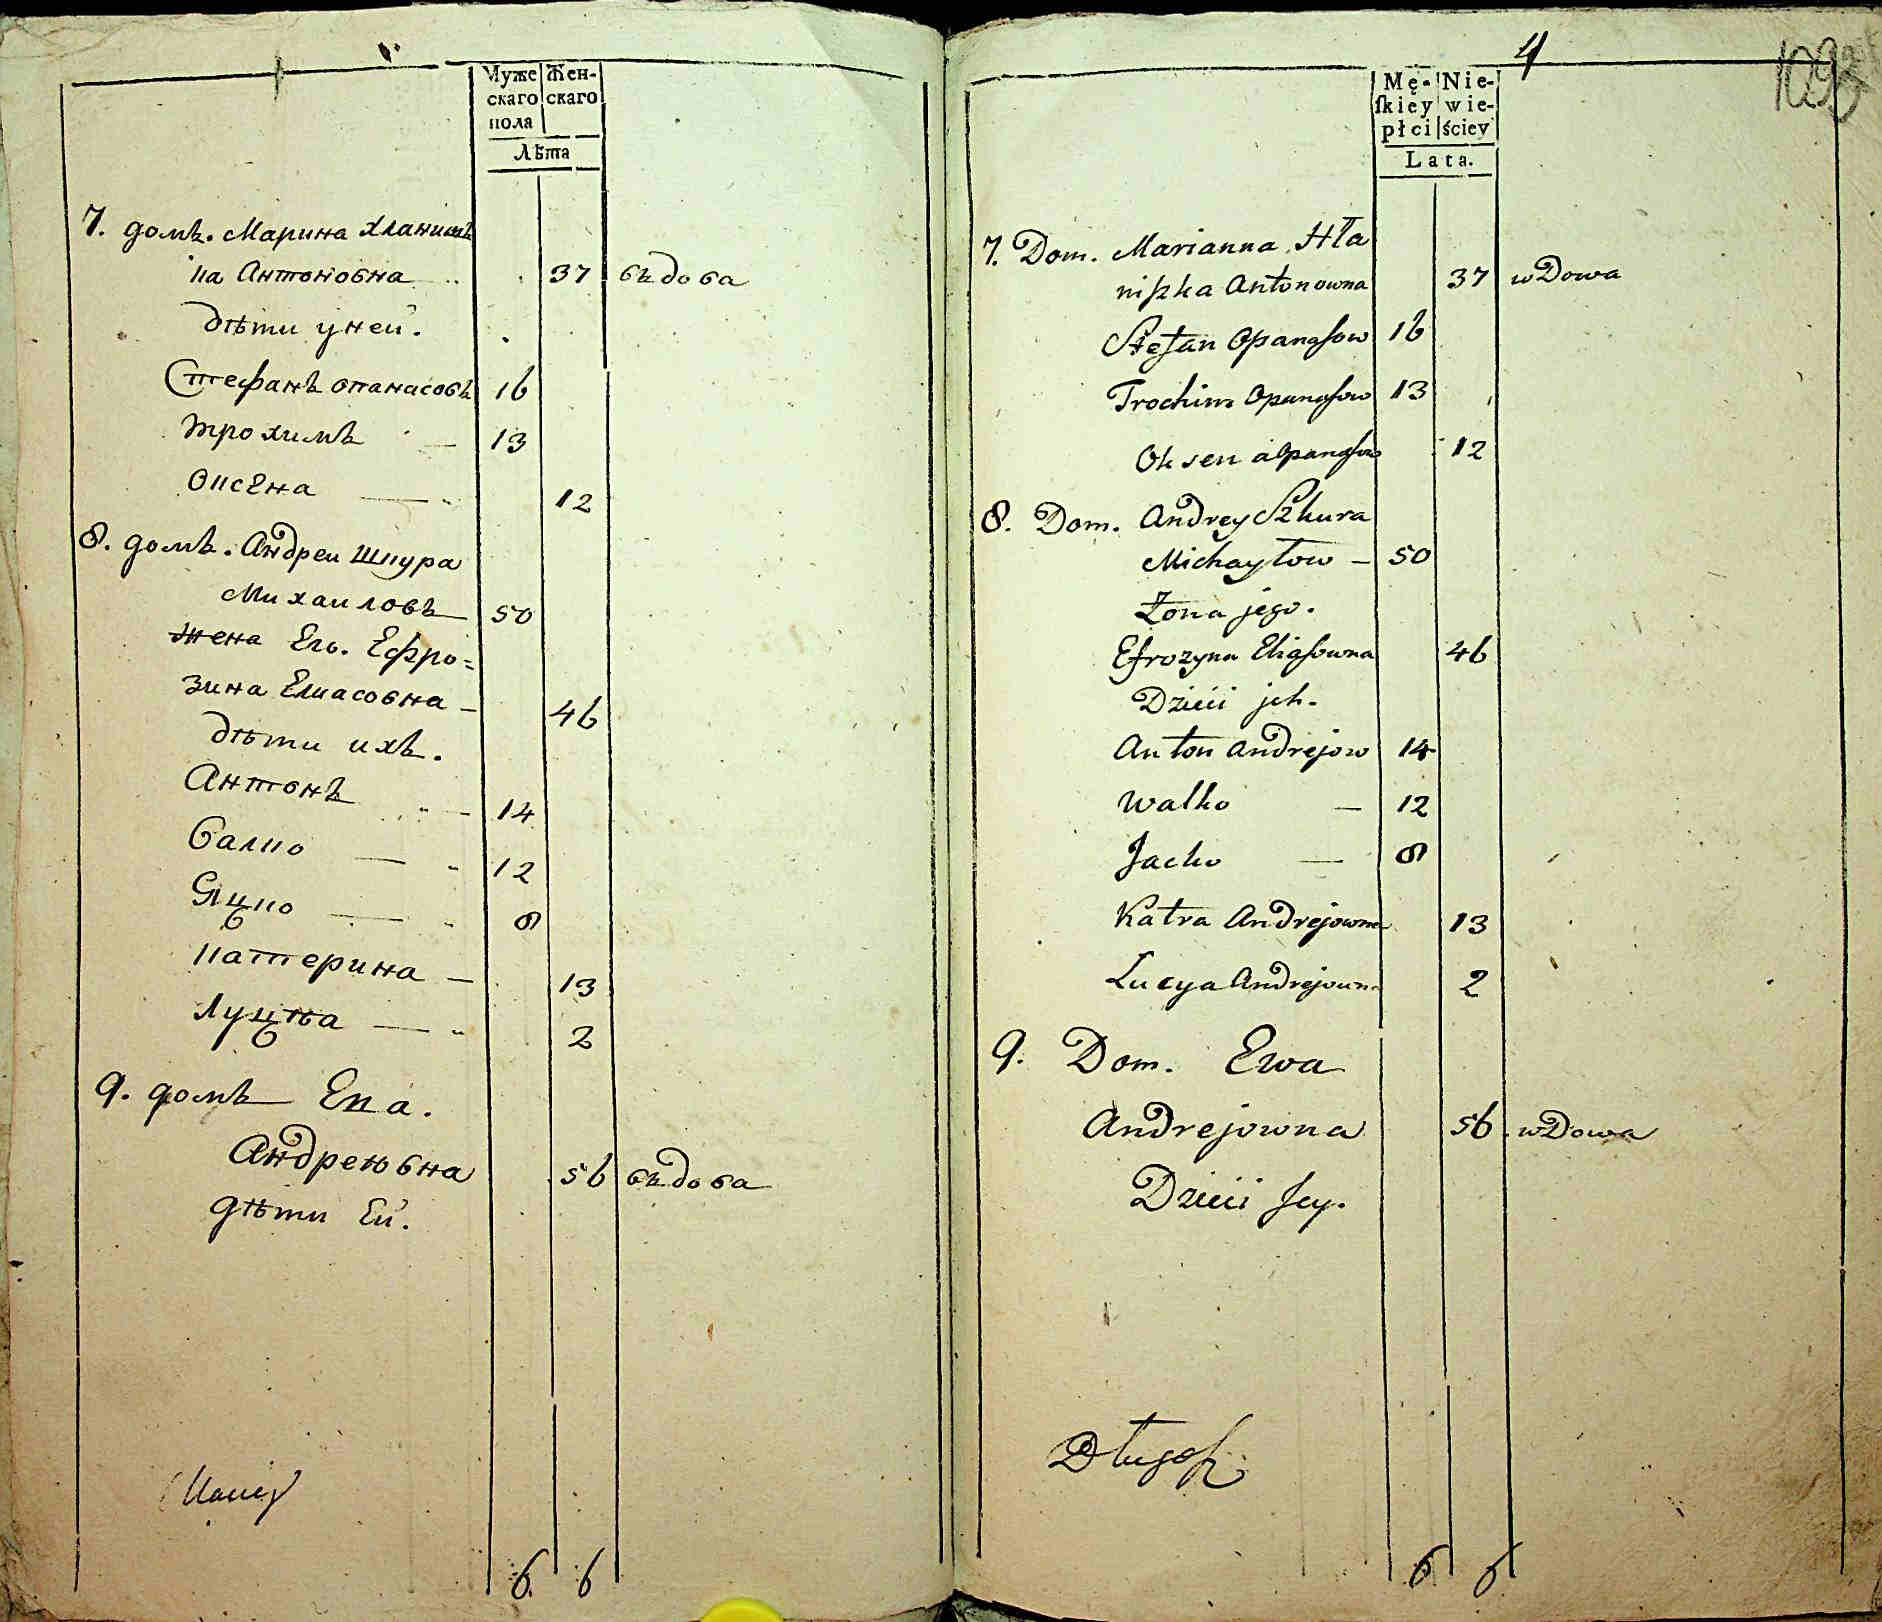 Муже
скаго
пола
Жен-
скаго
Лѣта
7. домъ. Марина Хланишъ
ка Антоновна 37 въдова
дѣти уней.
Стефанъ опанасовъ 16
трохимъ — 13
Оксена — 12
8. домъ. Андреи Шкура
Михаиловъ 50
жена Его. Ефро=
зина Елиасовна — 46
дѣти ихъ.
Антонъ — 14
Валко — 12
Яцко — 8
катерина — 13
Луцѣя — 2
9. домъ Ева.
Андреювна 56 въдова
дѣти Ей.
Maciey
6 6
4
Mę-
ſkiey
płci
Nie-
wie-
ściey
Lata.
7. Dom. Marianna Hła
niſzka Antonowna 37 wDowa
Stefan Opanaſow 16
Trochim Opanaſow 13
Oksen 12
8. Dom. Andrey Szkura
Michayłow — 50
Żona jego.
Efrozyna Eliaſowna 46
Dzieci jch.
Anton Andrejow 14
Walko — 12
Jacko — 8
Katra Andrejowna 13
Lucya Andrejowna 2
9. Dom. Ewa
Andrejowna 56 wDowa
Dzieci Jey.
Długoſz
6 6